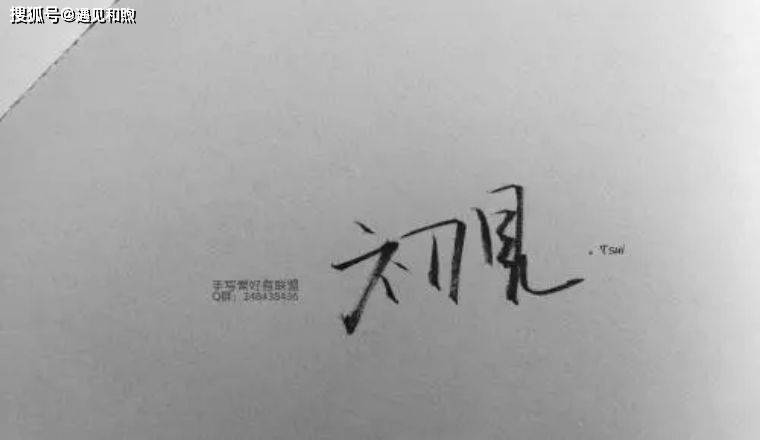 搜狐号@遇见和煦
初見
.Tsui
手写爱好者联盟
Q群：248438436